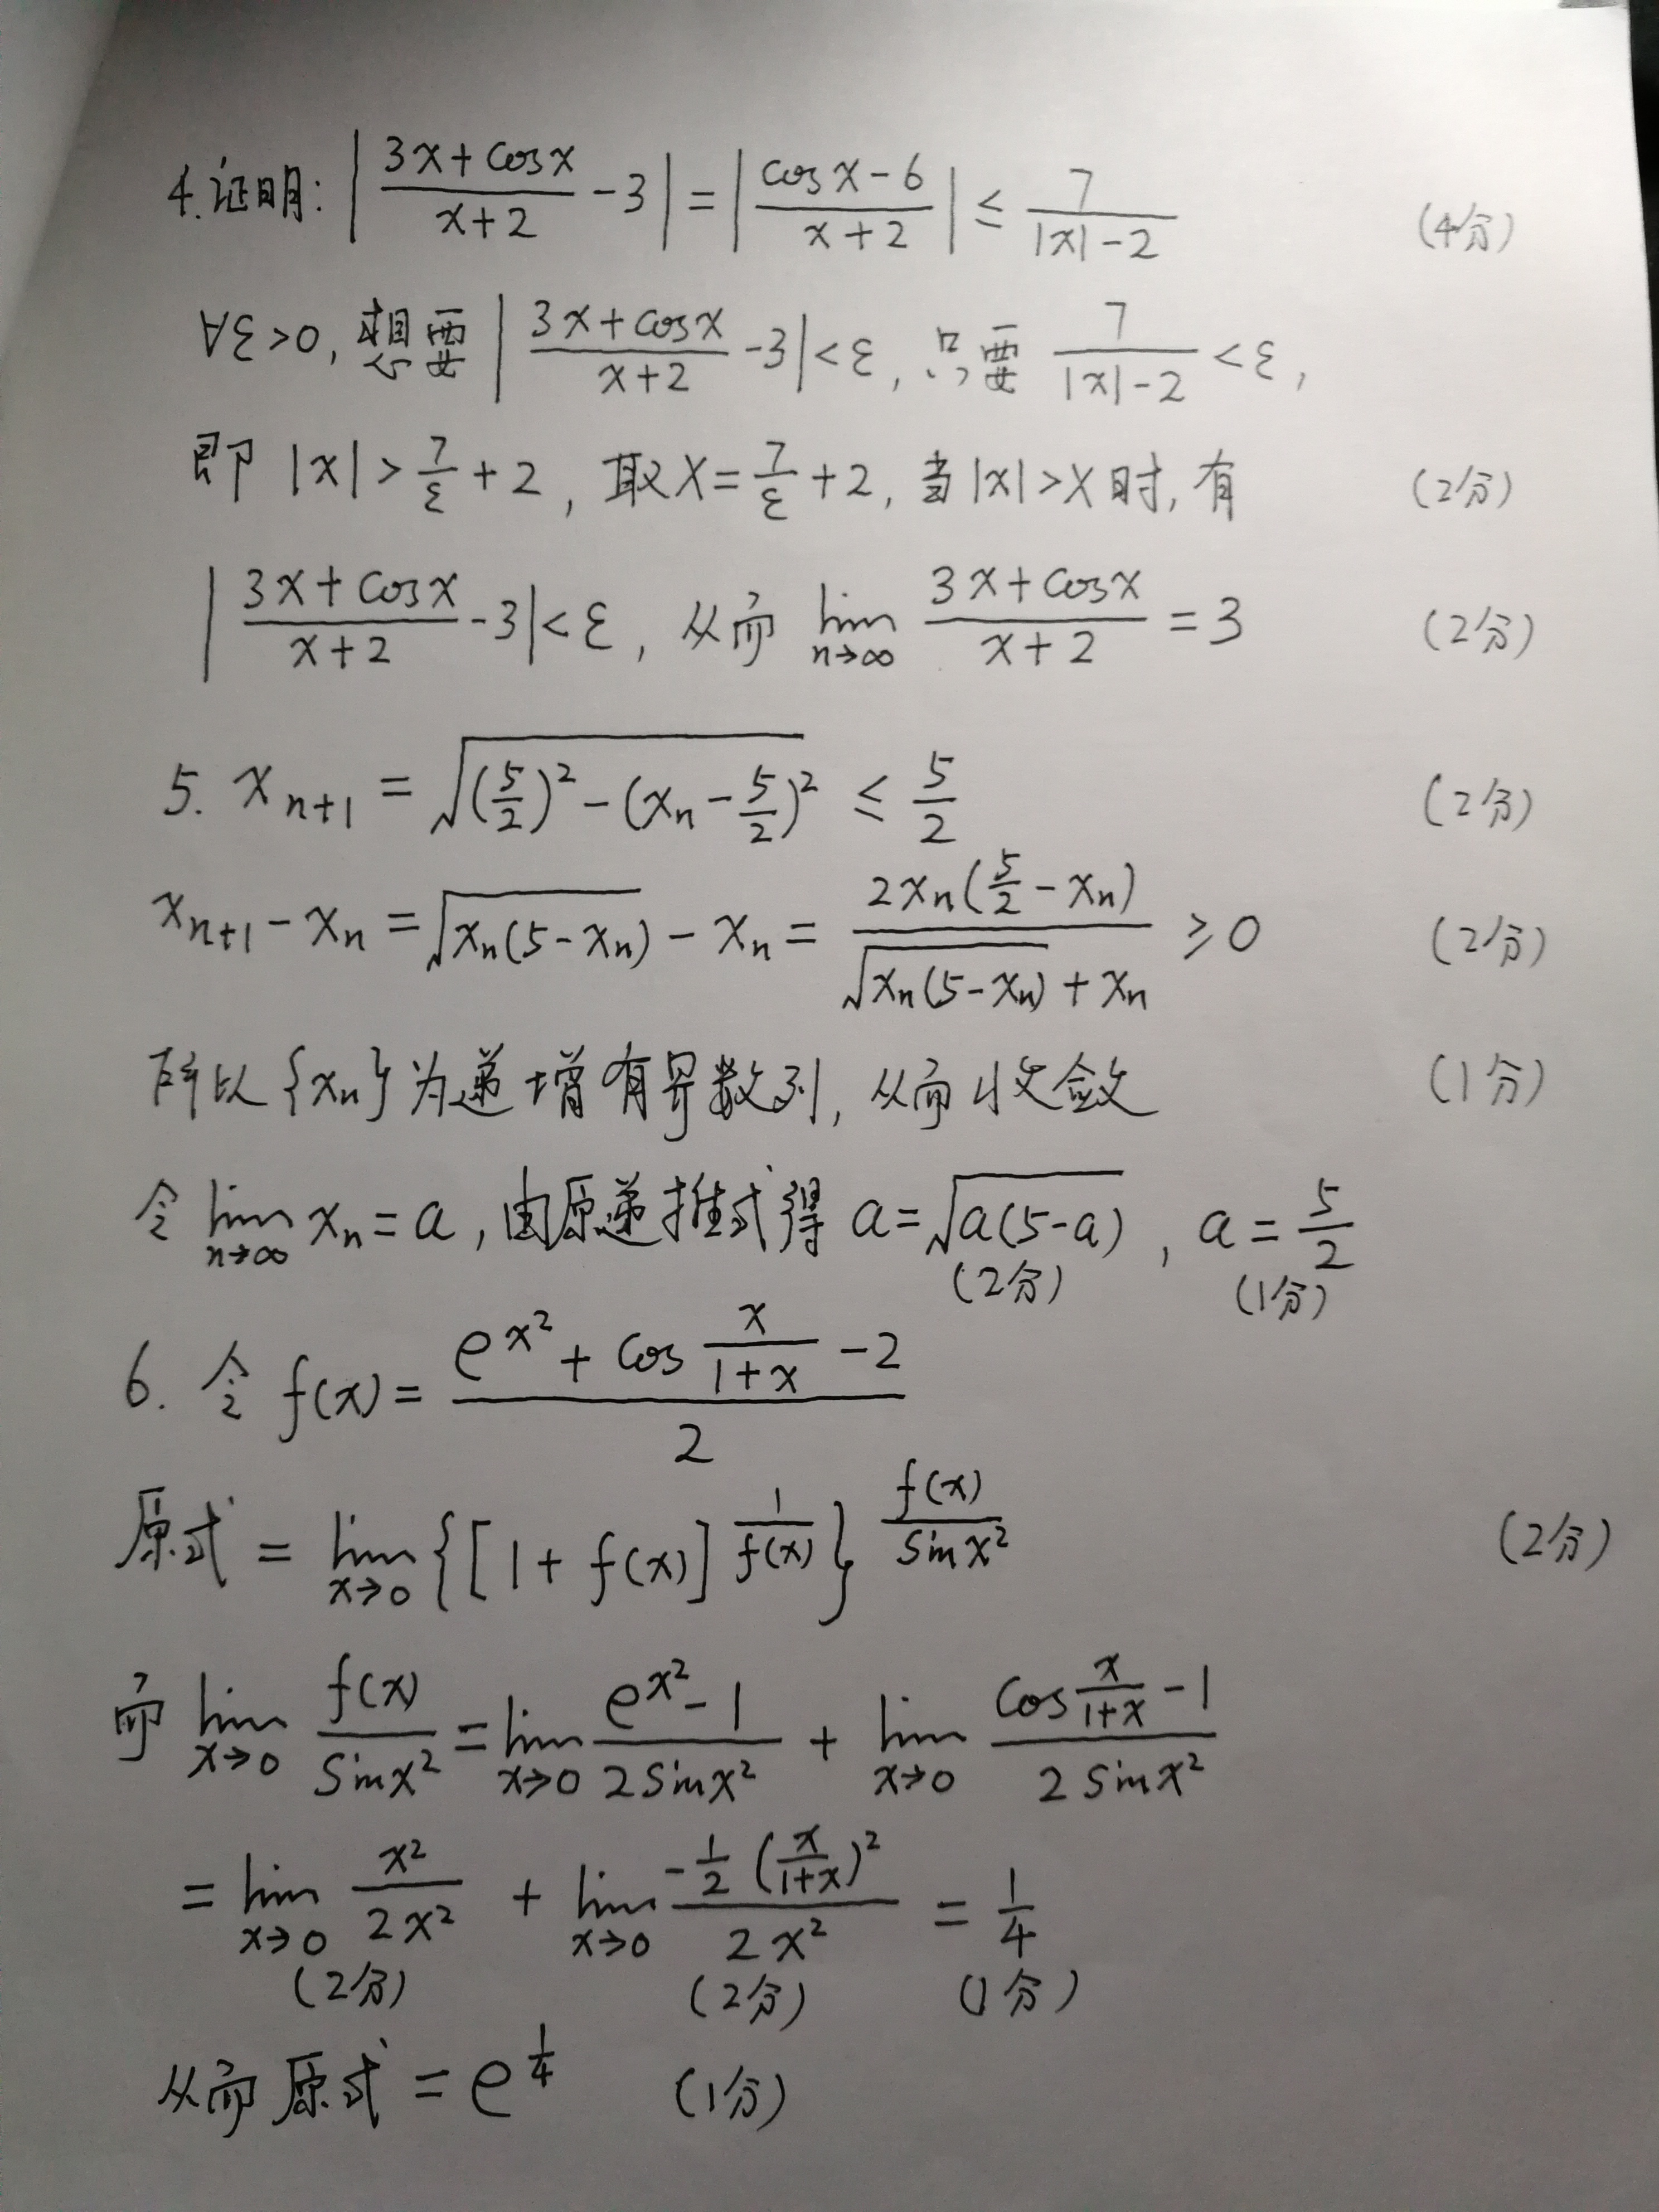 4.证明: |(3x+cosx)/(x+2) -3| = |(cosx-6)/(x+2)| ≤ 7/(|x|-2) (4分)
∀ε>0, 想要 |(3x+cosx)/(x+2) -3|<ε, 只要 7/(|x|-2) <ε,
即 |x|>7/ε+2, 取X=7/ε+2, 当|x|>X时, 有 (2分)
|(3x+cosx)/(x+2) -3|<ε, 从而 lim n→∞ (3x+cosx)/(x+2) =3 (2分)
5. x_{n+1} = √((5/2)²-(x_n-5/2)²) ≤ 5/2 (2分)
x_{n+1}-x_n = √(x_n(5-x_n)) - x_n = 2x_n(5/2-x_n)/(√(x_n(5-x_n))+x_n) ≥0 (2分)
所以{x_n}为递增有界数列, 从而收敛 (1分)
令 lim n→∞ x_n=a, 由原递推式得 a=√(a(5-a)), a=5/2
(2分) (1分)
6. 令 f(x)=(e^{x²}+cos x/(1+x) -2)/2
原式 = lim x→0 {[1+f(x)]^{1/f(x)}}^{f(x)/sinx²} (2分)
而 lim x→0 f(x)/sinx² = lim x→0 (e^{x²}-1)/(2sinx²) + lim x→0 (cos x/(1+x) -1)/(2sinx²)
= lim x→0 x²/(2x²) + lim x→0 (-1/2 (x/(1+x))²)/(2x²) = 1/4
(2分) (2分) (1分)
从而原式 = e^{1/4} (1分)